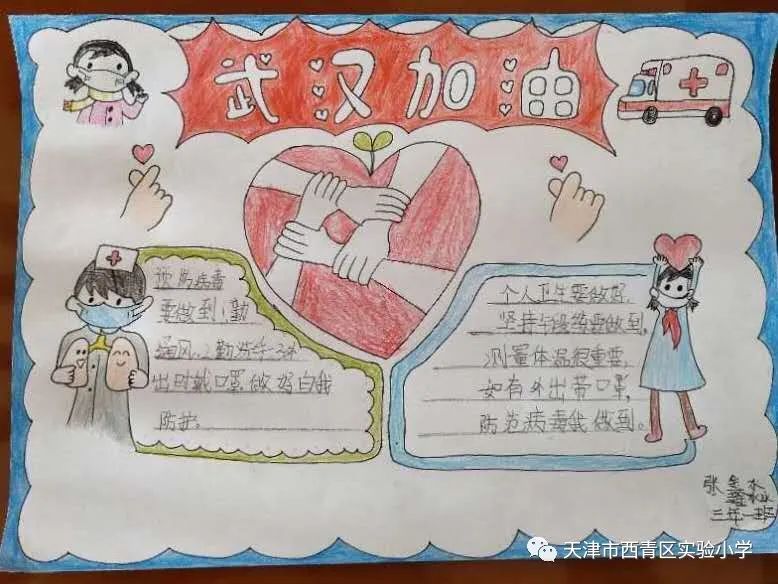 武汉加油
预防病毒
要做到:1勤
通风,2勤洗手,3外
出时戴口罩,做好自我
防护。
个人卫生要做好,
坚持锻练要做到。
测量体温很重要,
如有外出带口罩,
防范病毒我做到。
张鑫淼
三年一班
天津市西青区实验小学